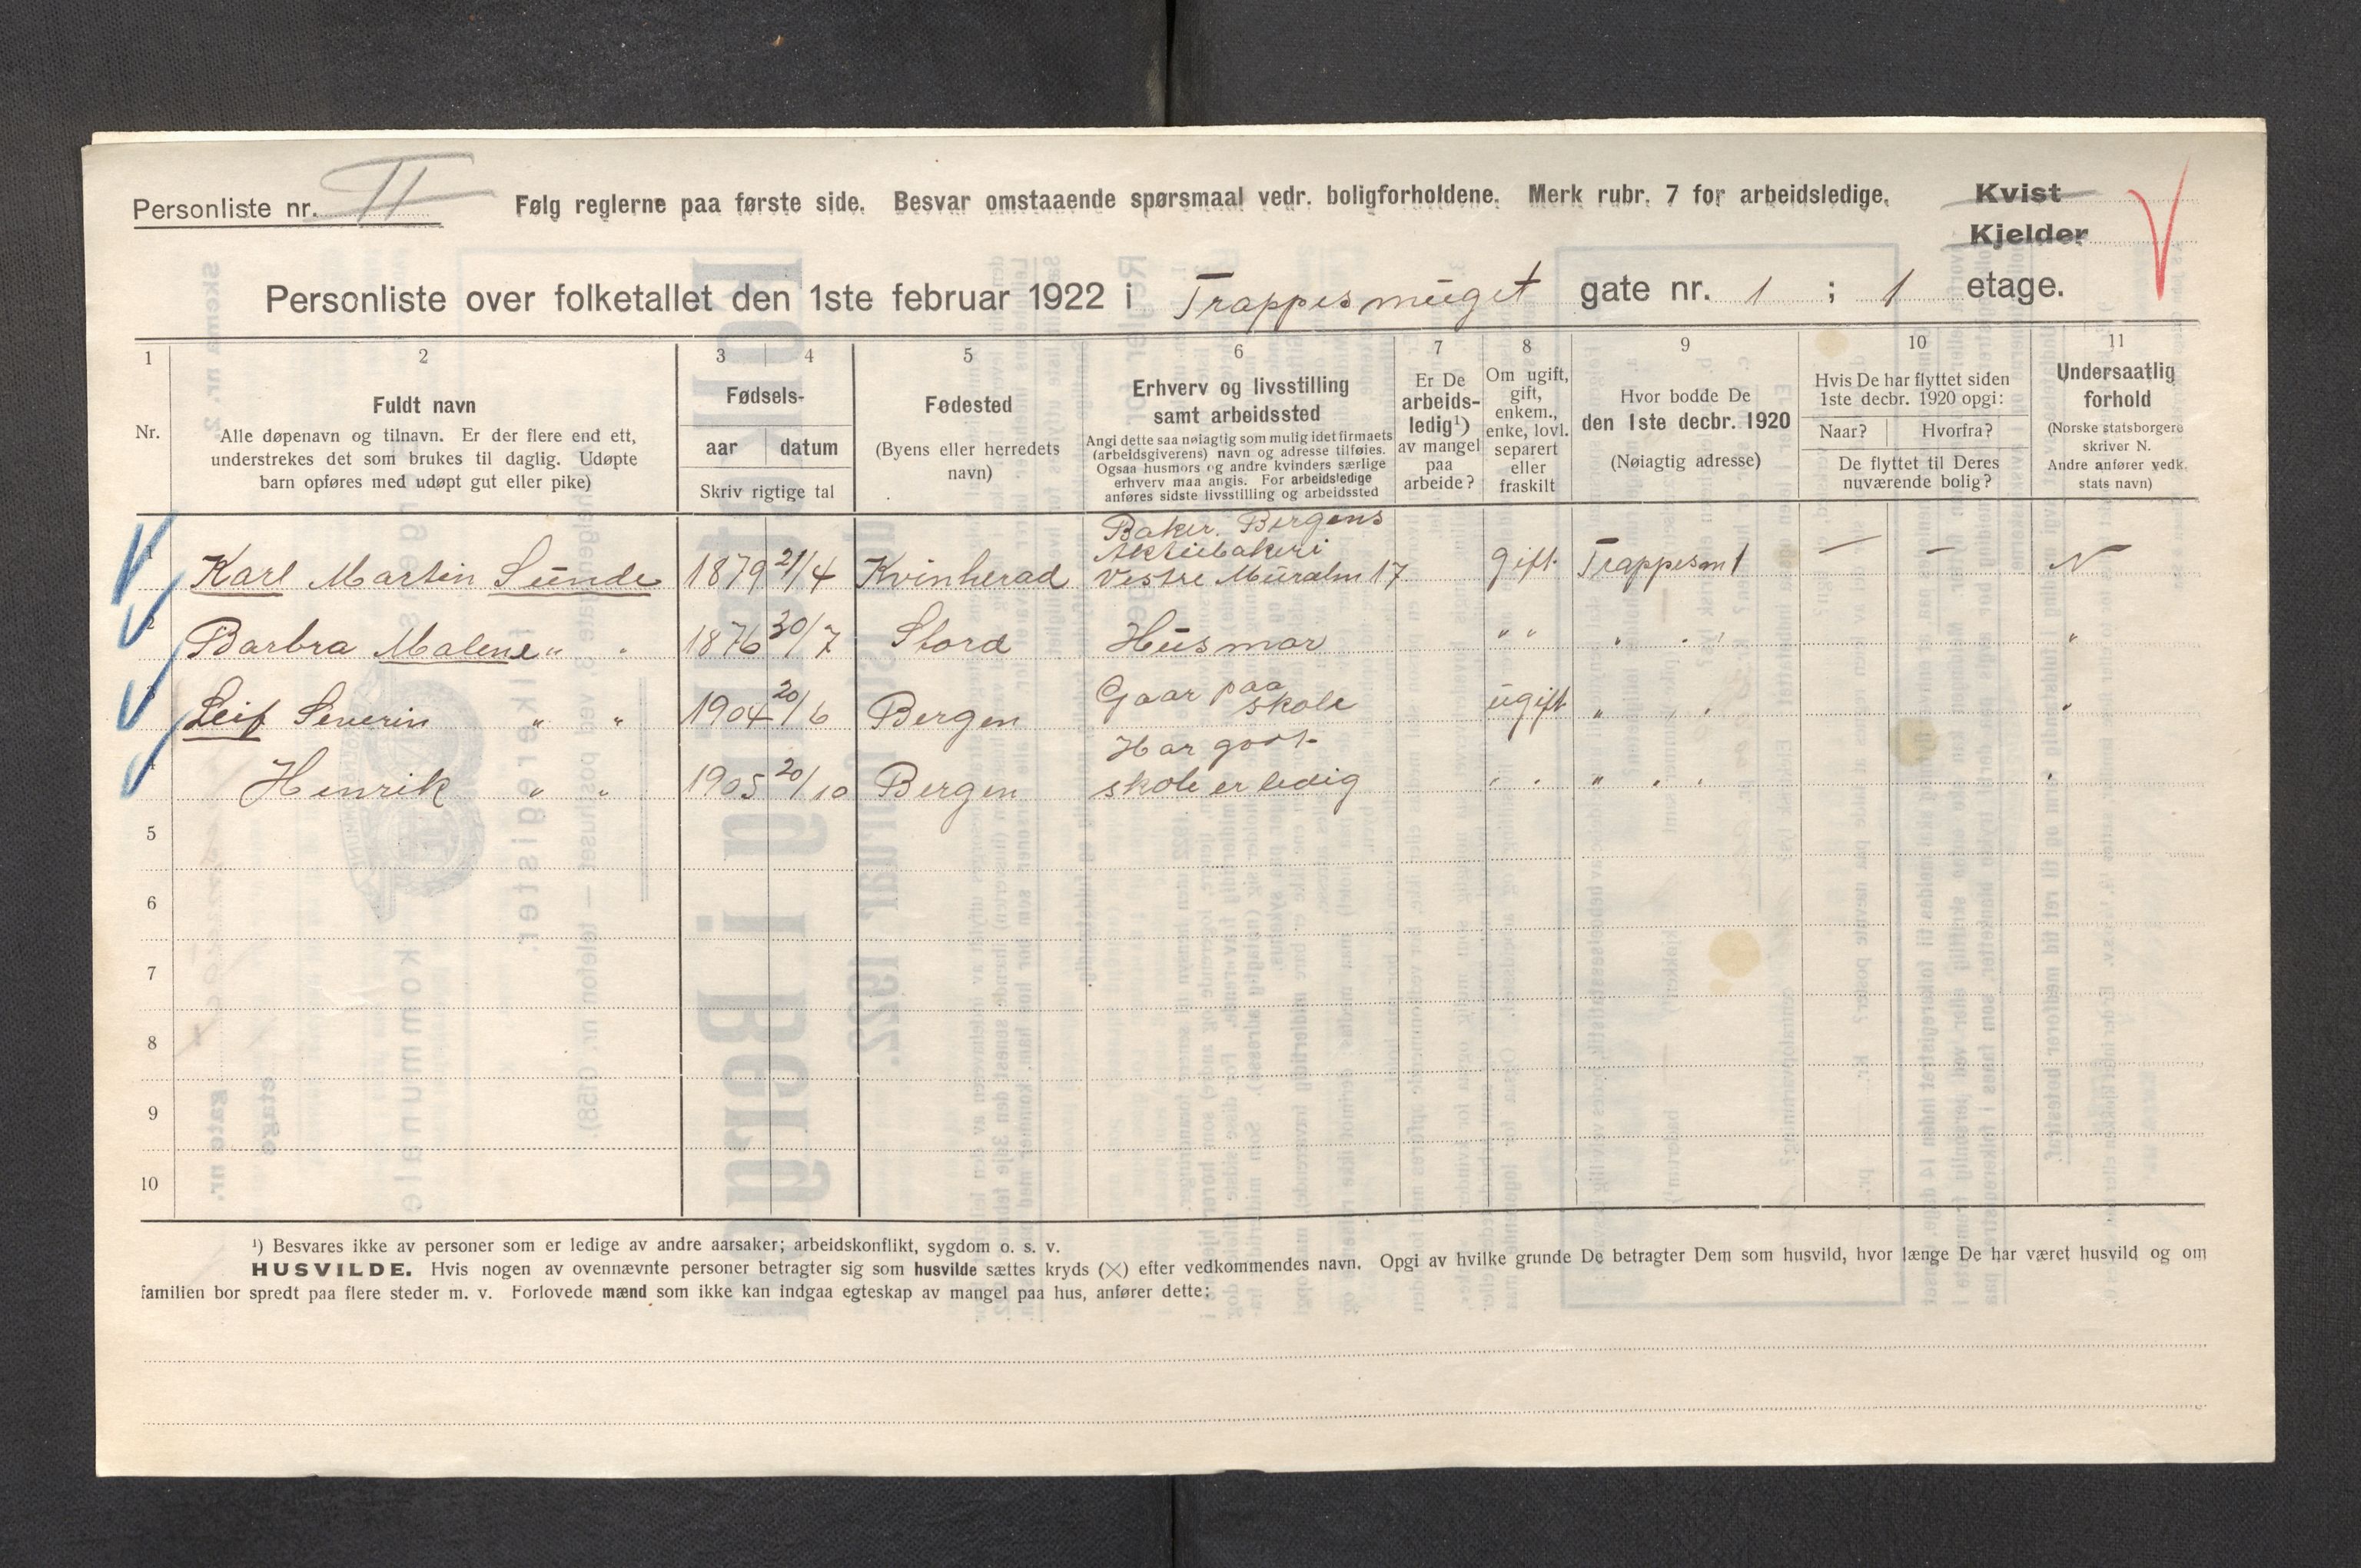 Personliste nr. II Følg reglerne paa første side. Besvar omstaaende spørsmaal vedr. boligforholdene. Merk rubr. 7 for arbeidsledige. Kvist
Kjelder
Personliste over folketallet den 1ste februar 1922 i Trappesmuget gate nr. 1 ; 1 etage.
1 2 3 4 5 6 7 8 9 10 11
Nr.
Fuldt navn
Alle døpenavn og tilnavn. Er der flere end ett,
understrekes det som brukes til daglig. Udøpte
barn opføres med udøpt gut eller pike)
Fødsels-
aar datum
Skriv rigtige tal
Fødested
(Byens eller herredets
navn)
Erhverv og livsstilling
samt arbeidssted
Angi dette saa nøiagtig som mulig idet firmaets
(arbeidsgiverens) navn og adresse tilføies.
Ogsaa husmors og andre kvinders særlige
erhverv maa angis. For arbeidsledige
anføres sidste livsstilling og arbeidssted
Er De
arbeids-
ledig¹)
av mangel
paa
arbeide?
Om ugift,
gift,
enkem.,
enke, lovl.
separert
eller
fraskilt
Hvor bodde De
den 1ste decbr. 1920
(Nøiagtig adresse)
Hvis De har flyttet siden
1ste decbr. 1920 opgi:
Naar? Hvorfra?
De flyttet til Deres
nuværende bolig?
Undersaatlig
forhold
(Norske statsborgere
skriver N.
Andre anfører vedk.
stats navn)
Baker. Bergens
Aktiebakeri
1 Karl Martin Sunde 1879 21/4 Kvinherad Vestre Muralm 17 gift Trappesm 1 — — N
2 Barbra Malene " " 1876 30/7 Stord Husmor " " " " " "
Gaar paa
3 Leif Severin " " 1904 20/6 Bergen skole ugift " " " "
Har gaat
4 Henrik " " 1905 20/10 Bergen skole er ledig " " " " " "
5
6
7
8
9
10
¹) Besvares ikke av personer som er ledige av andre aarsaker; arbeidskonflikt, sygdom o. s. v.
HUSVILDE. Hvis nogen av ovennævnte personer betragter sig som husvilde sættes kryds (×) efter vedkommendes navn. Opgi av hvilke grunde De betragter Dem som husvild, hvor længe De har været husvild og om
familien bor spredt paa flere steder m. v. Forlovede mænd som ikke kan indgaa egteskap av mangel paa hus, anfører dette: